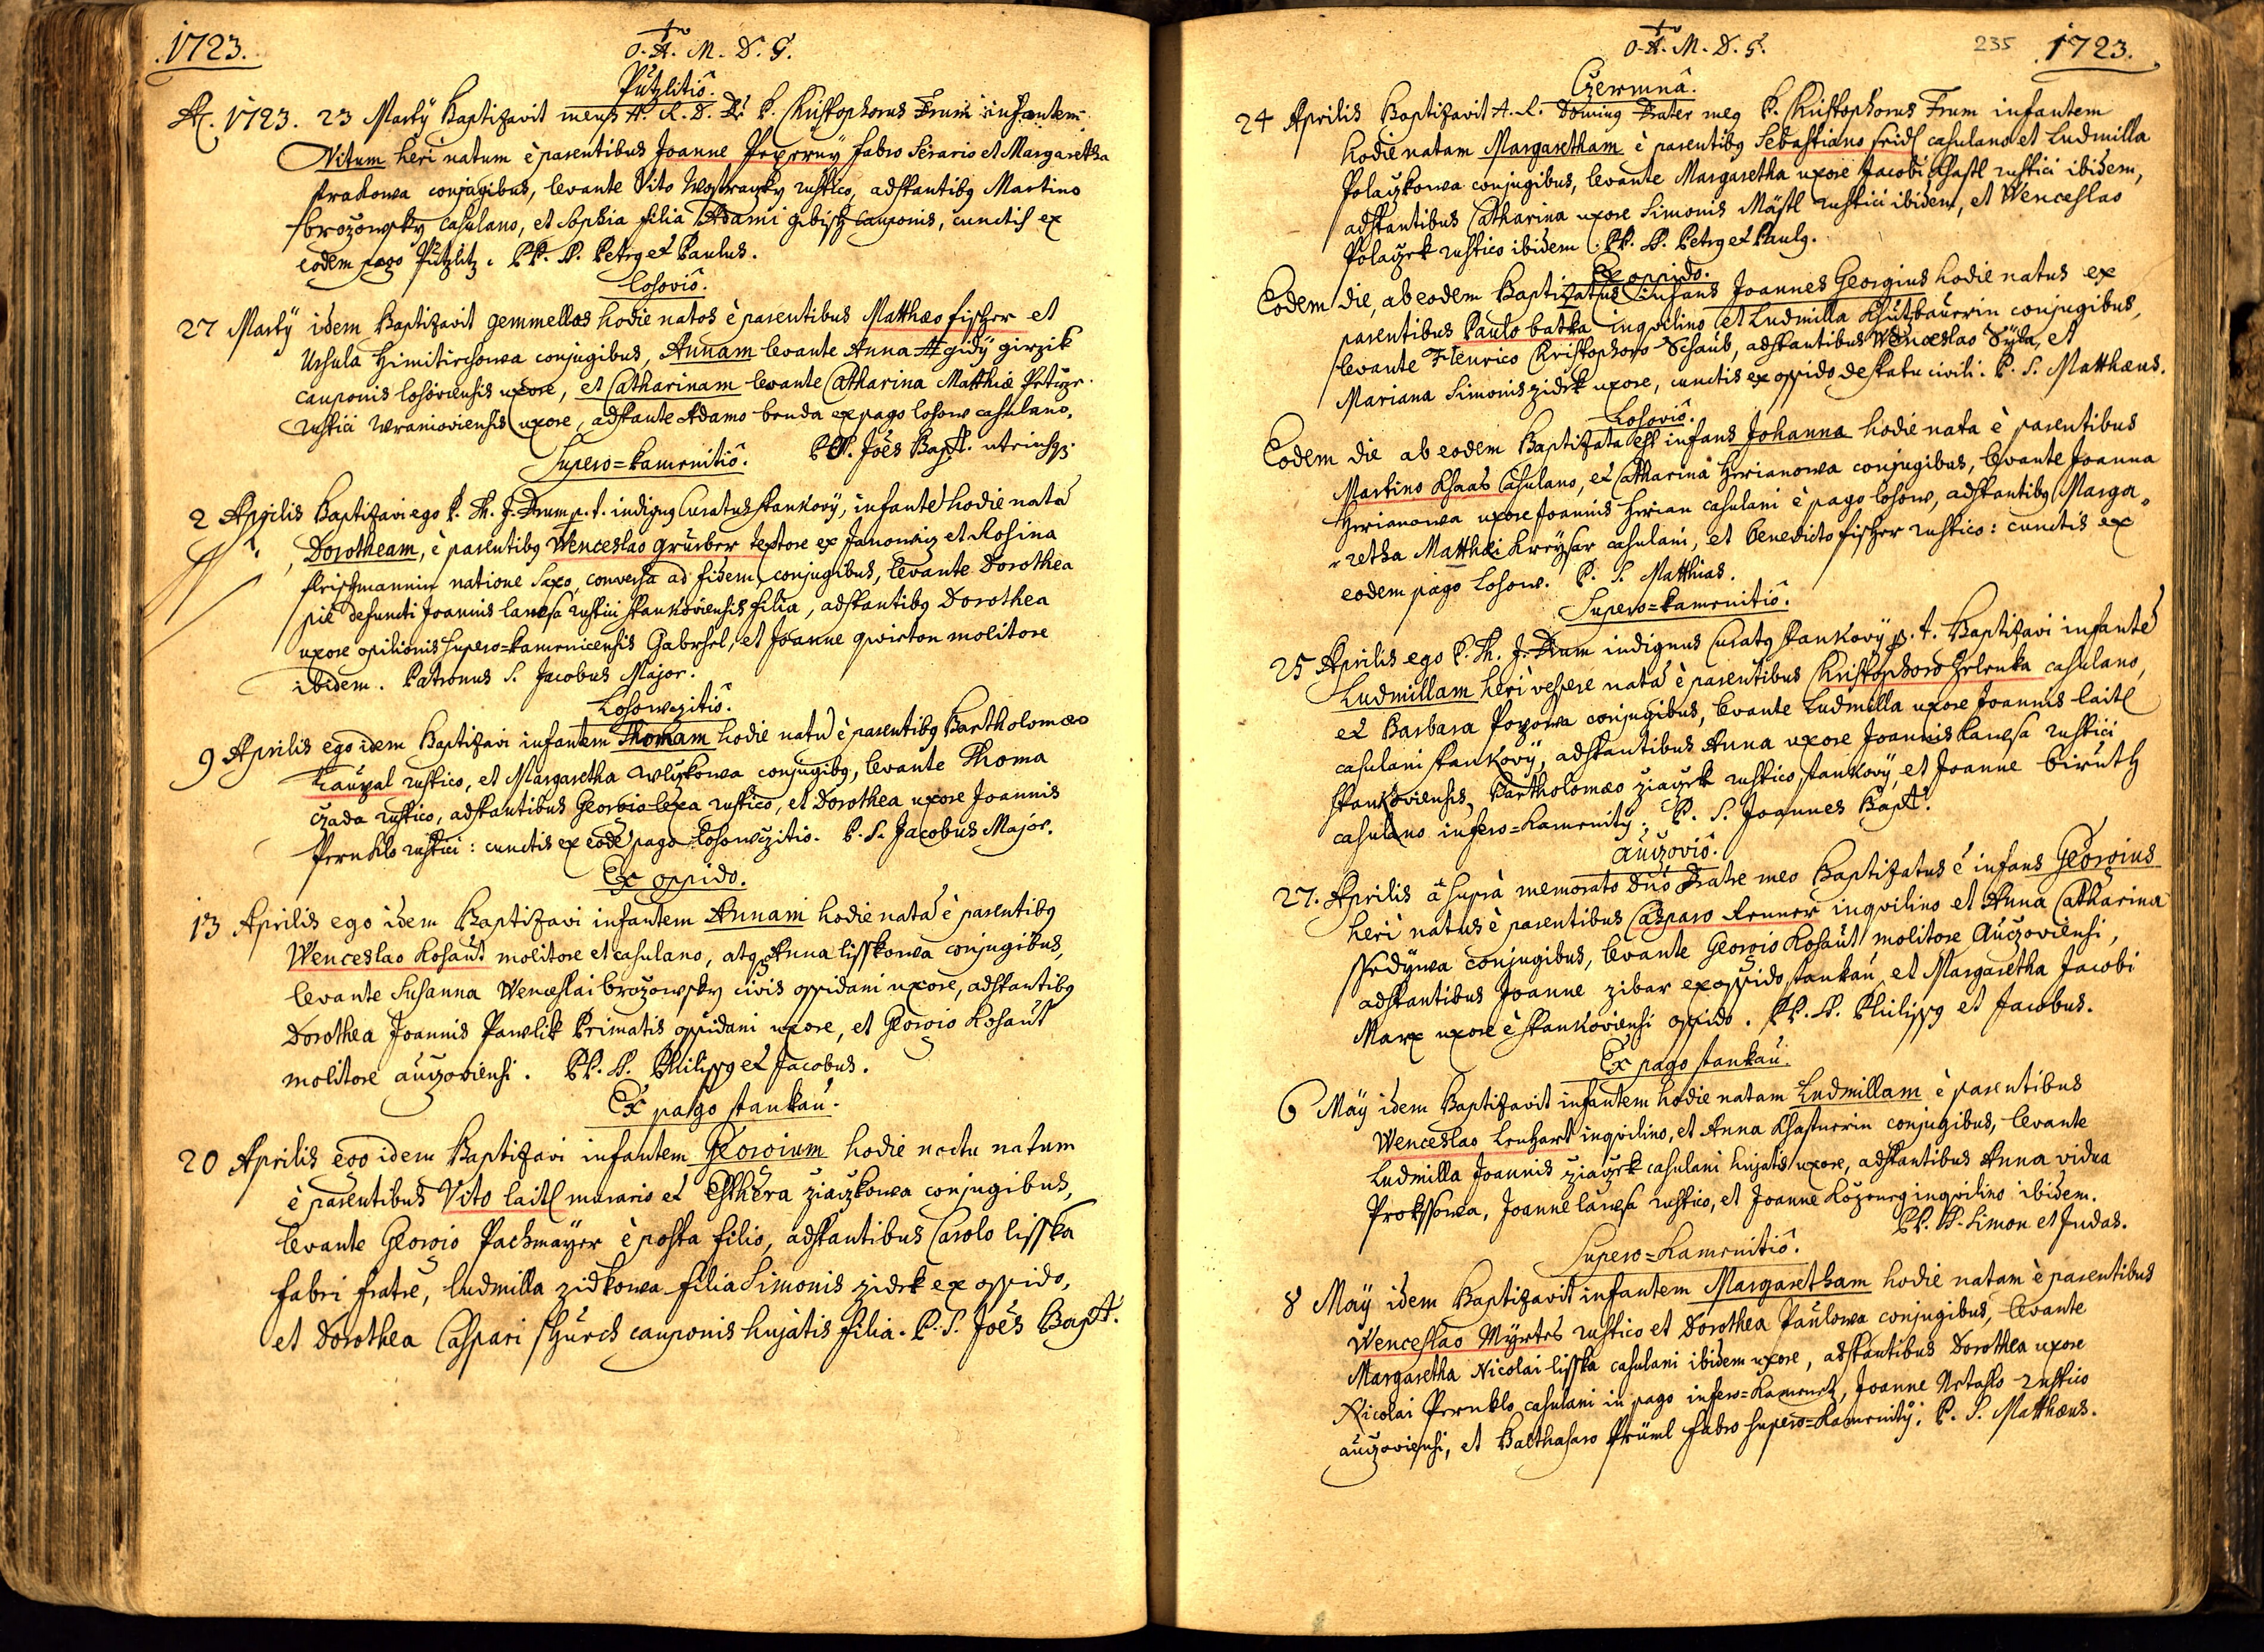 .1723.
O. A. M. D. G.
Putzlitiô.
Aõ. 1723. 23 Martÿ Baptizavit meus A. R. D. Dñs P. Christophorus Frum infantem
Vitum heri natum è parentibus Joanne Pexerny fabro serario et Margaretha
stradowa conjugibus, levante Vito Wostraczky rustico, adstantibus Martino
brozowsky casulano, et Sophia filia Adami gibisch cauponis, cunctis ex
eodem pago Putzlitz. PP. SS. Petrus et Paulus.
Losoviô.
27 Martÿ idem Baptizavit gemmellas hodie natos è parentibus Matthæo fischer et
Ursula Himitirchowa conjugibus, Annam levante Anna Ægidÿ girzik
cauponis losoviensis uxore, et Catharinam levante Catharina Matthiæ
rustici Wranioviensis uxore, adstante Adamo benda ex pago losow casulano.
PP. Joês Bapt. utriusq.
Supero=kamenitiô.
2 Aprilis Baptizavi ego P. Th. J. Frum p. t. indignus Curatus stankovÿ, infantē hodie natā
Dorotheam, è parentibus Wenceslao Grueber textore ex Janowicz et Rosina
fleischmannin natione Saxo, conversa ad fidem conjugibus, levante Dorothea
piè defuncti Joannis lawsa rustici stankoviensis filia, adstantibus Dorothea
uxore opilionis supero=kamenicensis Gabrhel, et Joanne qwiton molitore
ibidem. Patronus S. Jacobus Major.
Losowczitiô.
9 Aprilis ego idem Baptizavi infantem Thomam hodie natū è parentibus Bartholomæo
Kauzal rustico, et Margaretha Wlczkowa conjugibus, levante Thoma
czada rustico, adstantibus Georgio lexa rustico, et Dorothea uxore Joannis
Pernklo rustici: cunctis ex eodē pago Losowczitiô. P. S. Jacobus Major.
Ex oppido.
13 Aprilis ego idem Baptizavi infantem Annam hodie natā è parentibus
Wenceslao Kohaut molitore et casulano, atq Anna lisskowa conjugibus,
levante Susanna Wenceslai brozowsky civis oppidani uxore, adstantibus
Dorothea Joannis Pawlik Primatis oppidani uxore, et Georgio Kohaut
molitore auczoviensi. PP. SS. Philippus et Jacobus.
Ex pago stankau.
20 Aprilis ego idem Baptizavi infantem Georgium hodie noctu natum
è parentibus Vito laitl murario et Esthera ziaczkowa conjugibus,
levante Georgio Pachmayer è posta filio, adstantibus Carolo lisska
fabri fratre, ludmilla zidkowa filia Simonis zidek ex oppido,
et Dorothea Caspari schurch cauponis hujatis filia. P. S. Joês Bapt.
O. A. M. D. G.
235 .1723.
Czermnâ.
24 Aprilis Baptizavit A. R. Dominus Frater meus P. Christophorus Frum infantem
hodie natam Margaretham è parentibus Sebastiano seidl casulano et Ludmilla
Polaczkowa conjugibus, levante Margaretha uxore Jacobi Chastl rustici ibidem,
adstantibus Catharina uxore Simonis Mästl rustici ibidem, et Wenceslao
Polaczek rustico ibidem. PP. SS. Petrus et Paulus.
Ex oppido.
Eodem die, ab eodem Baptizatus infans Joannes Georgius hodie natus ex
parentibus Paulo batka inqvilino et Ludmilla Khutzbauerin conjugibus,
levante Henrico Christophoro Schaub, adstantibus Wenceslao Syba, et
Mariana Simonis zidek uxore, cunctis ex oppido de statu civili. P. S. Matthæus.
Losoviô.
Eodem die ab eodem Baptizata est infans Johanna hodie nata è parentibus
Martino Khaas Casulano, et Catharina Herianowa conjugibus, levante Joanna
Herianowa uxore Joannis Herian casulani è pago losow, adstantibus Marga=
=retha Matthæi Kreysar casulani, et Benedicto fischer rustico: cunctis ex
eodem pago Losow. P. S. Matthias.
Supero=kamenitiô.
25 Aprilis ego P. Th. J. Frum indignus Curatus stankovÿ p. t. Baptizavi infantē
Ludmillam heri vespere natā è parentibus Christophoro Zelenka casulano,
et Barbara Popowa conjugibus, levante Ludmilla uxore Joannis laitl
casulani stankovÿ, adstantibus Anna uxore Joannis lawsa rustici
stankoviensis, Bartholomæo ziaczek rustico stankovÿ, et Joanne Biruth
casulano infero=kamenitÿ. P. S. Joannes Bapt.
auczoviô.
27. Aprilis â suprà memorato Dnō Fratre meo Baptizatus ē infans Georgius
heri natus è parentibus Casparo Renner inqvilino et Anna Catharina
ssedywa conjugibus, levante Georgio Kohaut molitore Auczoviensi,
adstantibus Joanne zibar ex oppido stankau, et Margaretha Jacobi
Marx uxore è stankoviensi oppido. PP. SS. Philippus et Jacobus.
Ex pago stankau.
6 Maÿ idem Baptizavit infantem hodie natam Ludmillam è parentibus
Wenceslao Lenhart inqvilino, et Anna Khastnerin conjugibus, levante
Ludmilla Joannis ziaczek casulani hujatis uxore, adstantibus Anna vidua
Prokssowa, Joanne lawsa rustico, et Joanne Kozoureg inqvilino ibidem.
PP. SS. Simon et Judas.
Supero=Kamenitiô.
8 Maÿ idem Baptizavit infantem Margaretham hodie natam è parentibus
Wenceslao Myrtes rustico et Dorothea Paulowa conjugibus, levante
Margaretha Nicolai lisska casulani ibidem uxore, adstantibus Dorothea uxore
Nicolai Pernklo casulani in pago infero=Kamenetz, Joanne Netahlo rustico
auczoviensi, et Balthasaro Prüml fabro supero=Kamenitÿ. P. S. Matthæus.